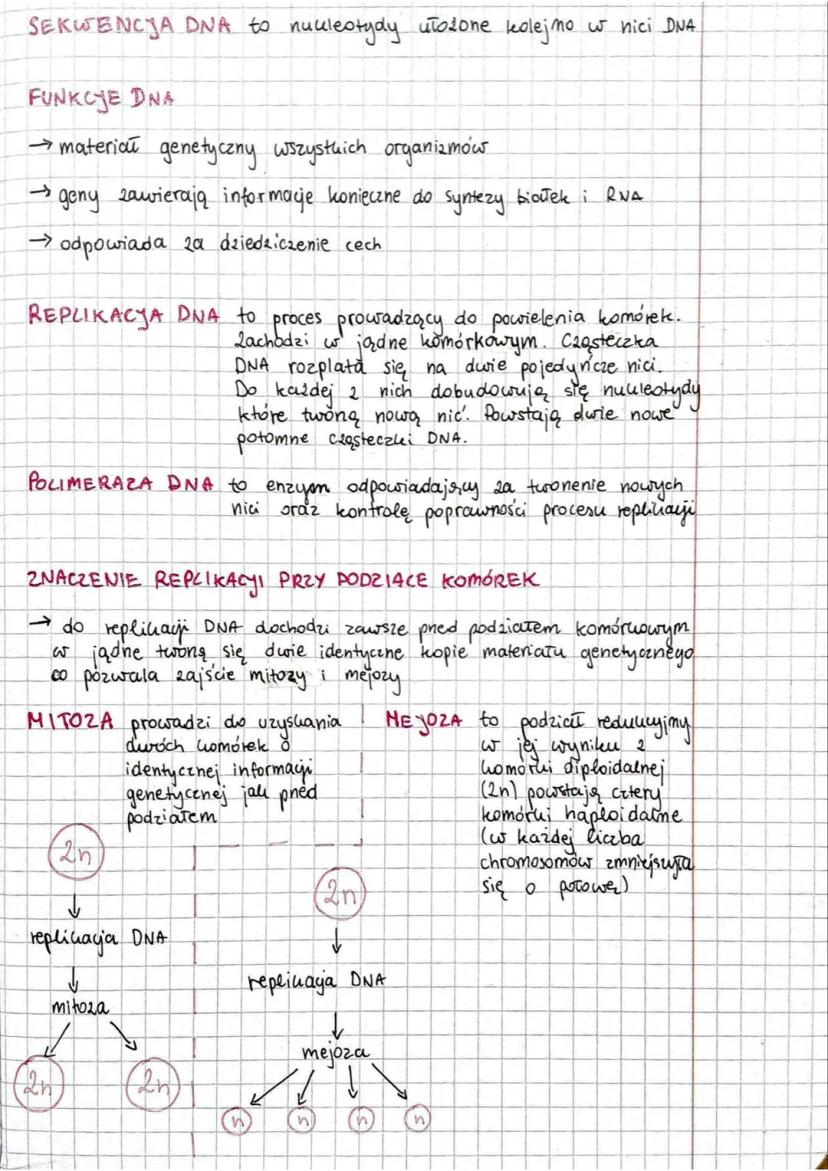 SEKWENCJA DNA to nukleotydy ułożone kolejno w nici DNA
FUNKCJE DNA
→ materiał genetyczny wszystkich organizmów
→ geny zawierają informacje konieczne do syntezy białek i RNA
→ odpowiada za dziedziczenie cech
REPLIKACJA DNA to proces prowadzący do powielenia komórek.
Zachodzi w jądrze komórkowym. Cząsteczka
DNA rozplata się na dwie pojedyńcze nici.
Do każdej z nich dobudowują się nukleotydy
które tworzą nową nić. Powstają dwie nowe
potomne cząsteczki DNA.
POLIMERAZA DNA to enzym odpowiadający za tworzenie nowych
nici oraz kontrolę poprawności procesu replikacji
ZNACZENIE REPLIKACJI PRZY PODZIALE KOMÓREK
→ do replikacji DNA dochodzi zawsze przed podziałem komórkowym
w jądrze tworzą się dwie identyczne kopie materiału genetycznego
co pozwala zajście mitozy i mejozy
MITOZA prowadzi do uzyskania
dwóch komórek o
identycznej informacji
genetycznej jak przed
podziałem
MEJOZA to podział redukcyjny
w jej wyniku z
komórki diploidalnej
(2n) powstają cztery
komórki haploidalne
(w każdej liczba
chromosomów zmniejszyła
się o połowę)
2n
↓
replikacja DNA
↓
mitoza
2n 2n
2n
↓
replikacja DNA
↓
mejoza
n n n n